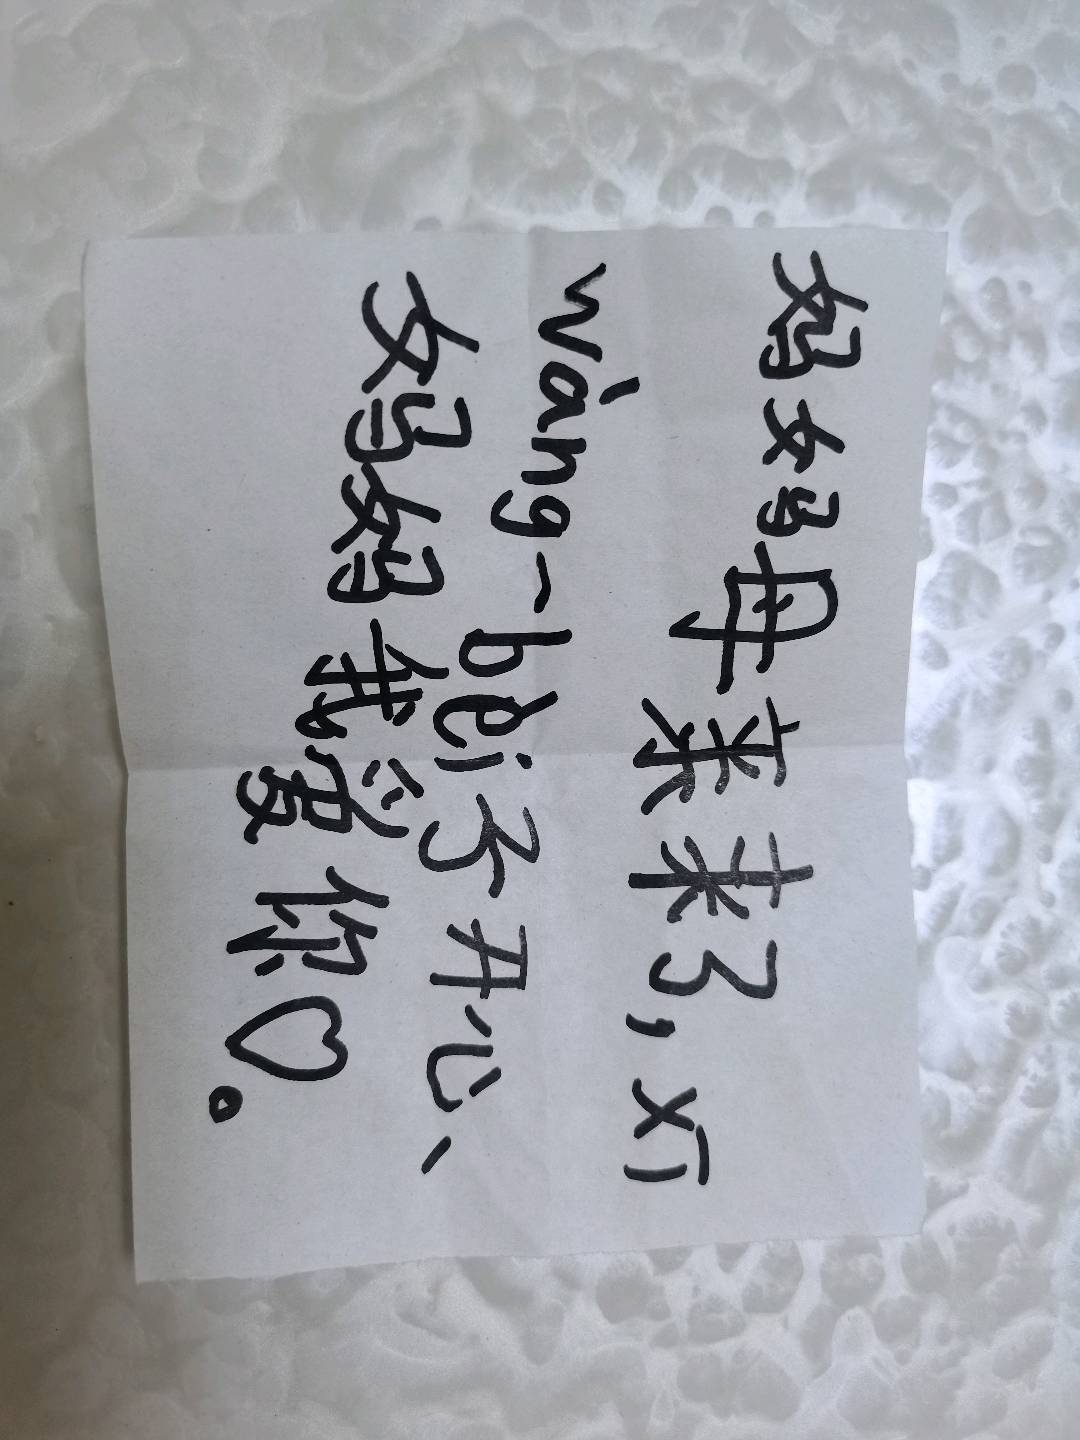 妈妈母亲来了,xī
wàng一bèi子开心、
妈妈我爱你♡。